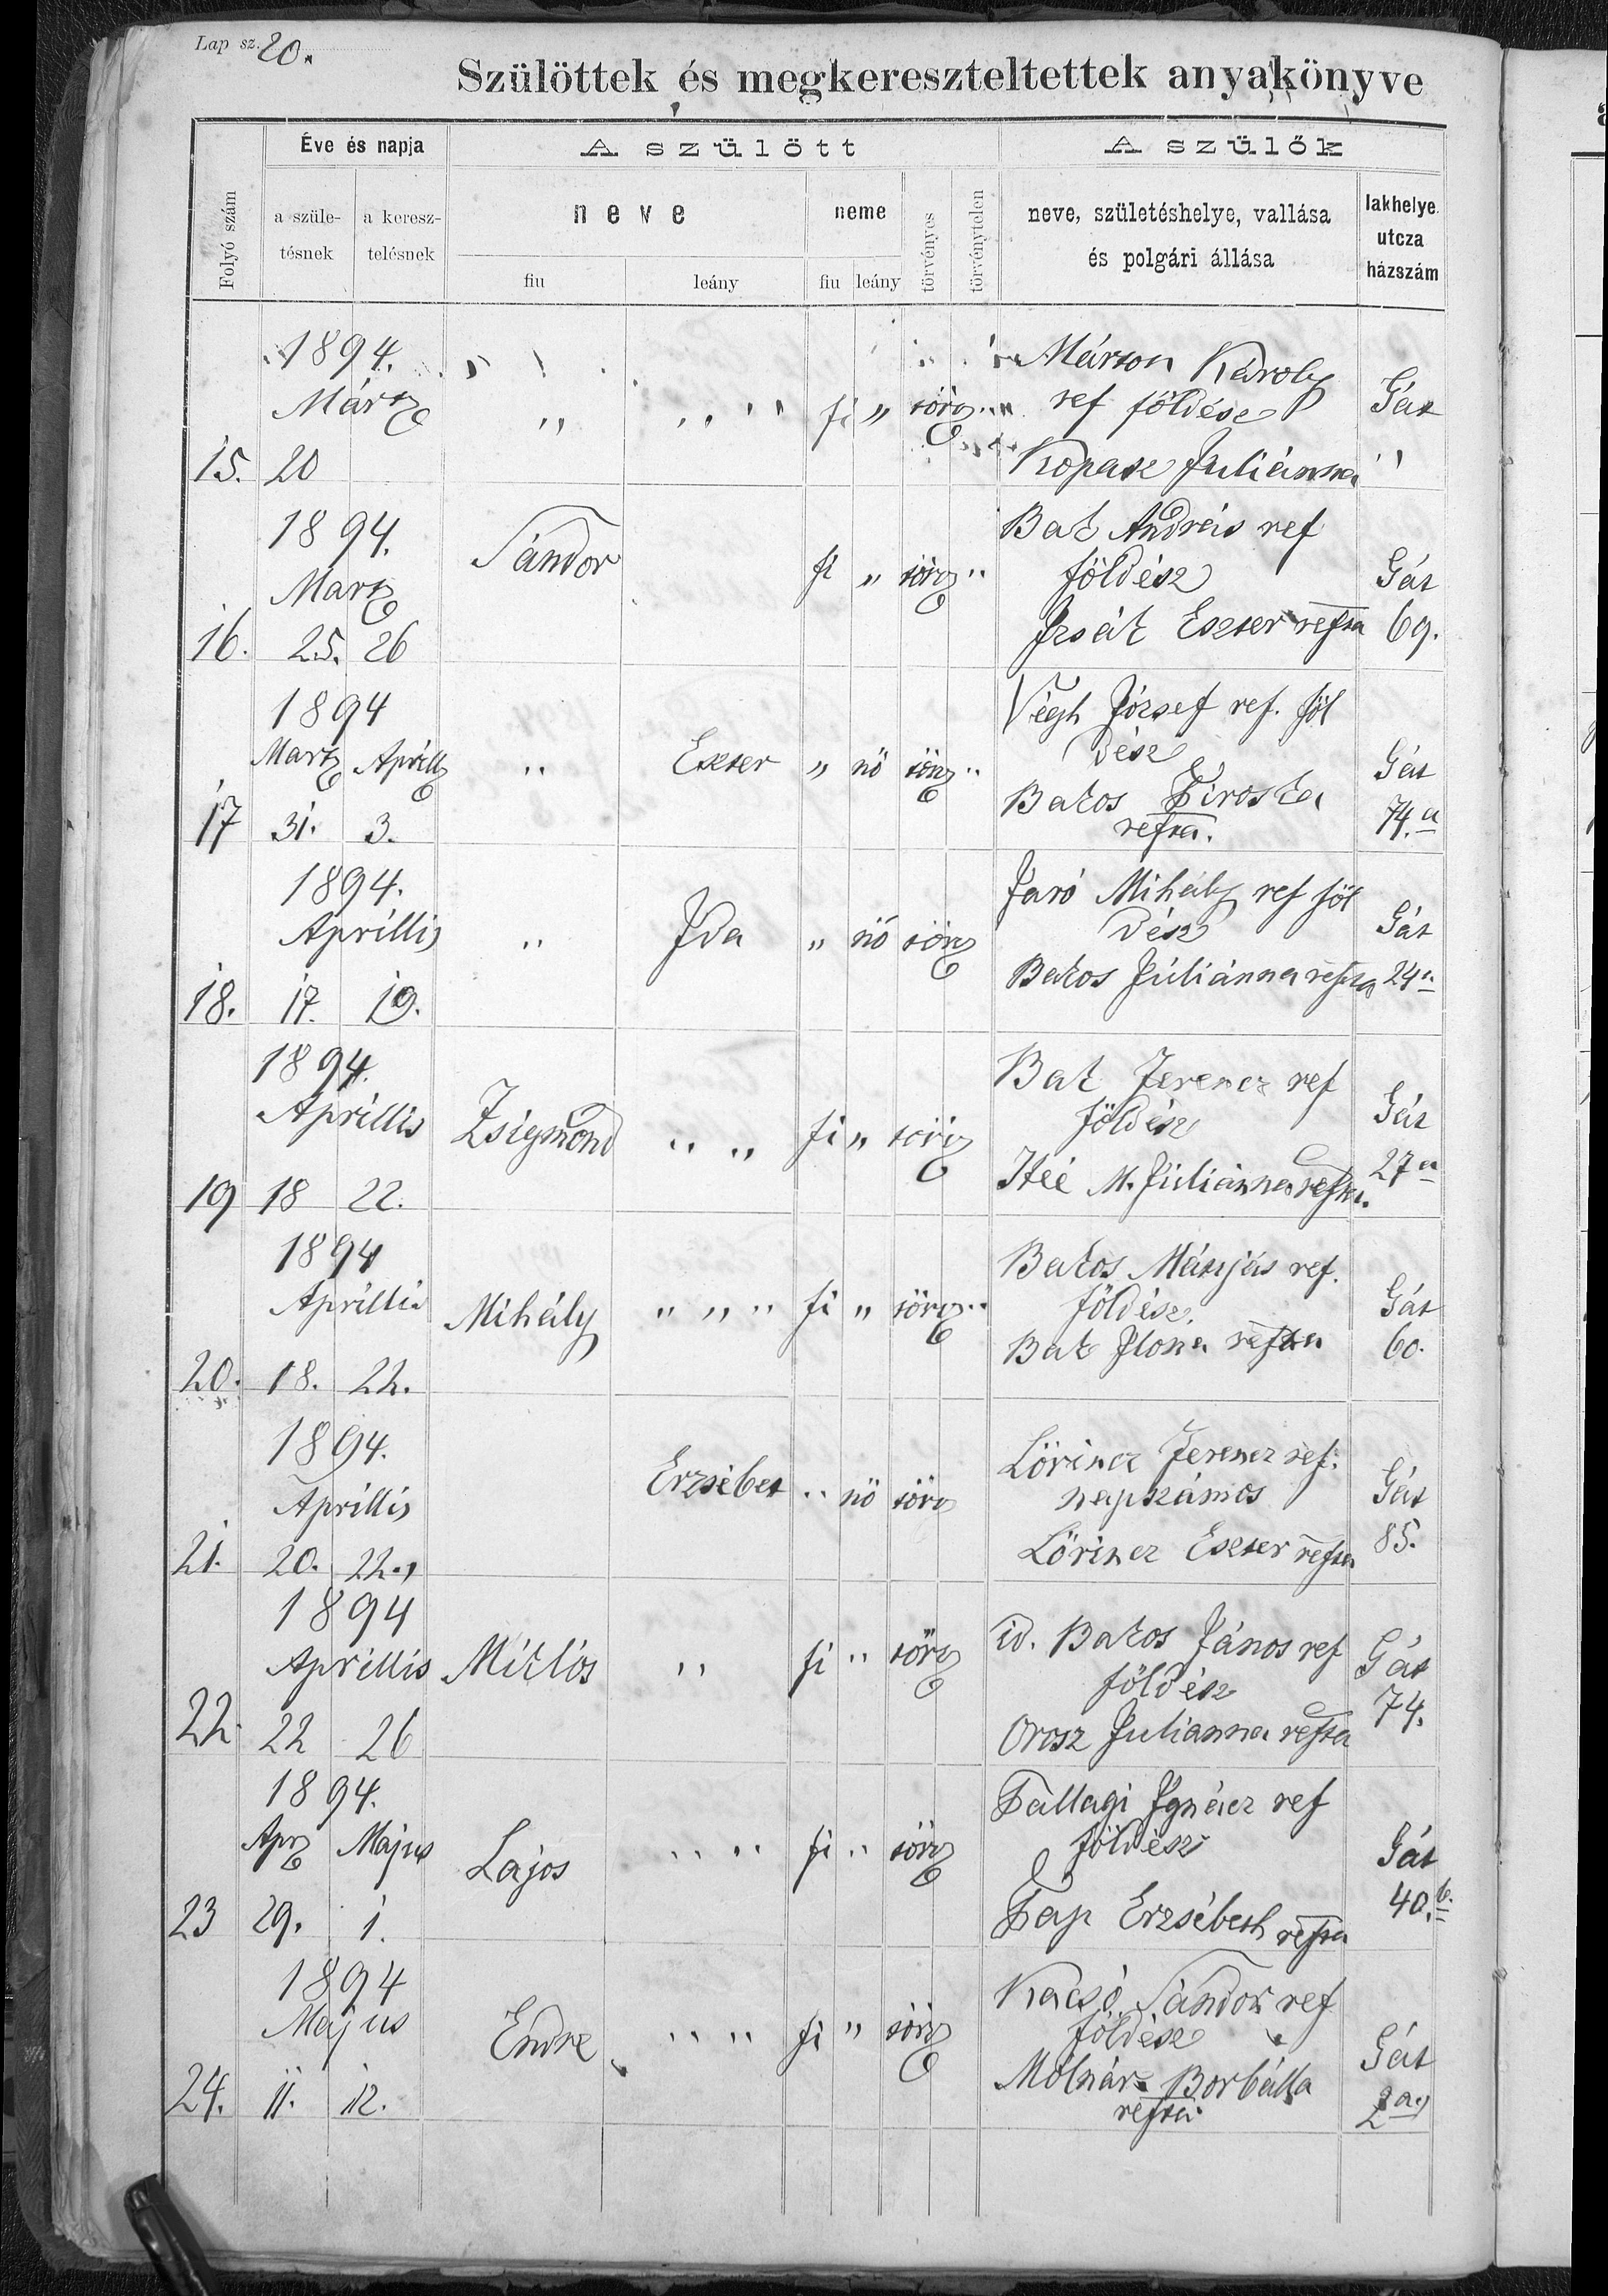 Lap sz. 20.
Szülöttek és megkereszteltettek anyakönyve
Folyó szám
Éve és napja
a szüle-
tésnek
a keresz-
telésnek
A szülött
neve
fiu
leány
neme
fiu
leány
törvényes
törvénytelen
A szülők
neve, születéshelye, vallása
és polgári állása
lakhelye
utcza
házszám
1894.
Mártz
15. 20
fi „
Márton Károly
ref földész
Kopasz Juliánna
Gát
1894.
Martz
16. 25. 26
Sándor
fi „
Bak András ref
földész
Izsák Eszter refta
Gát
69.
1894
Martz Aprill
17 31. 3.
„ Eszter „ nö
Végh József ref. föl
dész
Bakos Piroska
refta.
Gát
74.a
1894.
Aprillis
18. 17. 19.
„ Ida „ nö
Jaró Mihály ref föl
dész
Bakos Júliánna refta
Gát
24a.
1894.
Aprillis
19 18 22.
Zsigmond „ „ fi „
Bak Ferencz ref
földész
M. Júliánna refta.
Gát
27a
1894
Aprillis
20. 18. 22.
Mihály „ „ „ fi „
Bakos Mátyás ref.
földész.
Bak Ilona refta
Gát
60.
1894.
Aprillis
21. 20. 22.
Erzsébet „ nö
Lörincz Ferencz ref.
napszámos
Lörincz Eszter refta
Gát
85.
1894
Aprillis
22. 22 26
Miklós „ fi „
id. Bakos János ref
földész
Orosz Julianna refta
Gát
74.
1894.
Apr Május
23 29. 1.
Lajos „ „ fi „
Pallagi Ignácz ref
földész
Pap Erzsébeth refta
Gát
40.b.
1894
Május
24. 11. 12.
Endre „ „ fi „
Kacsó Sándor ref
földész
Mólnár Borbálla
refta
Gát
2a.